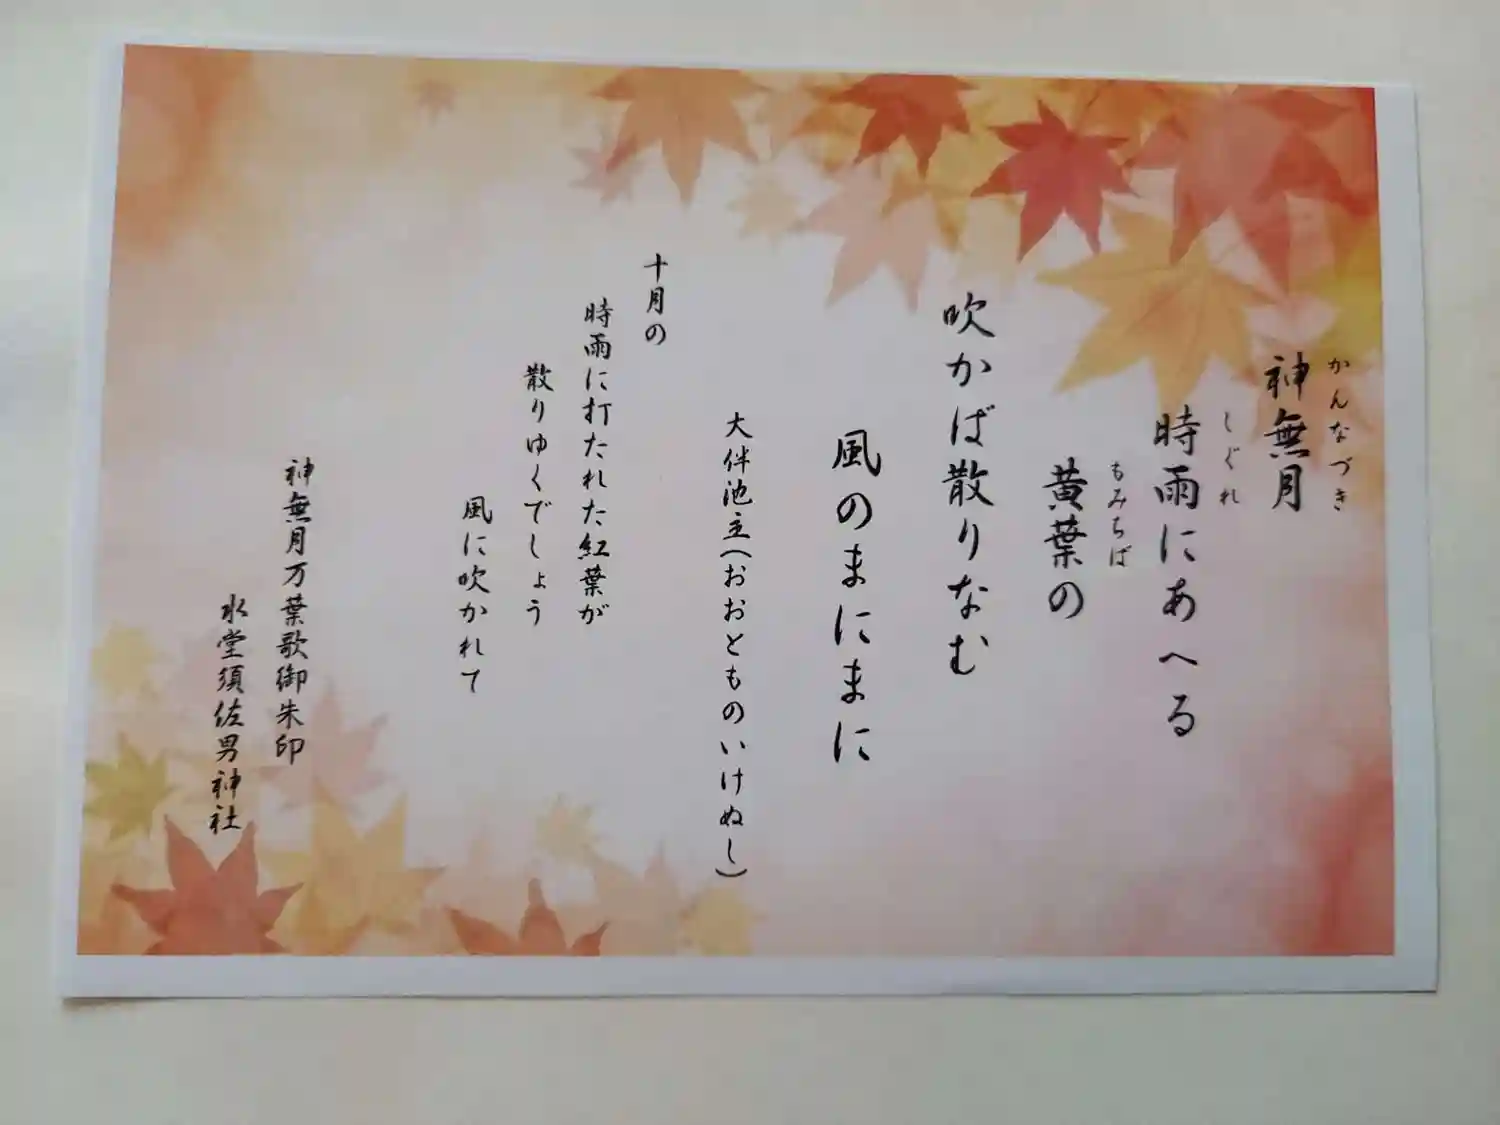 かんなづき
神無月
しぐれ
時雨にあへる
もみちば
黄葉の
吹かば散りなむ
風のまにまに
大伴池主(おおとものいけぬし)
十月の
時雨に打たれた紅葉が
散りゆくでしょう
風に吹かれて
神無月万葉歌御朱印
水堂須佐男神社